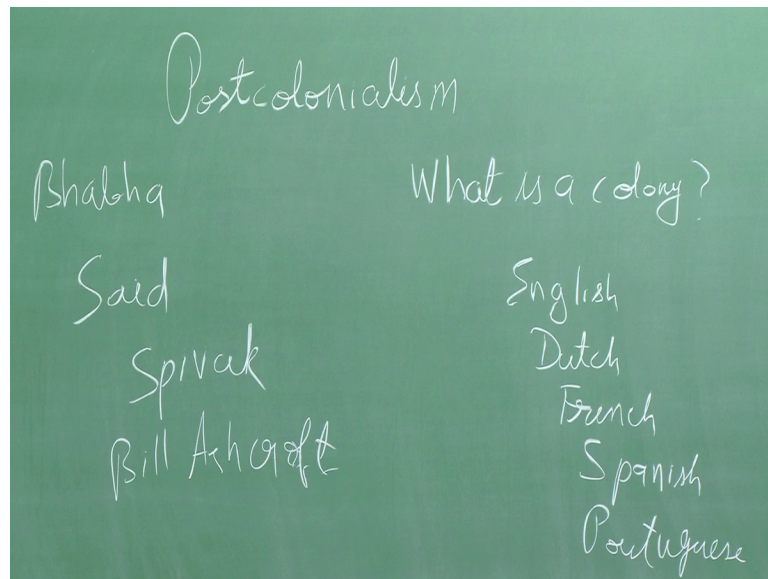 Postcolonialism
Bhabha
Said
Spivak
Bill Ashcroft
What is a colony?
English
Dutch
French
Spanish
Portuguese